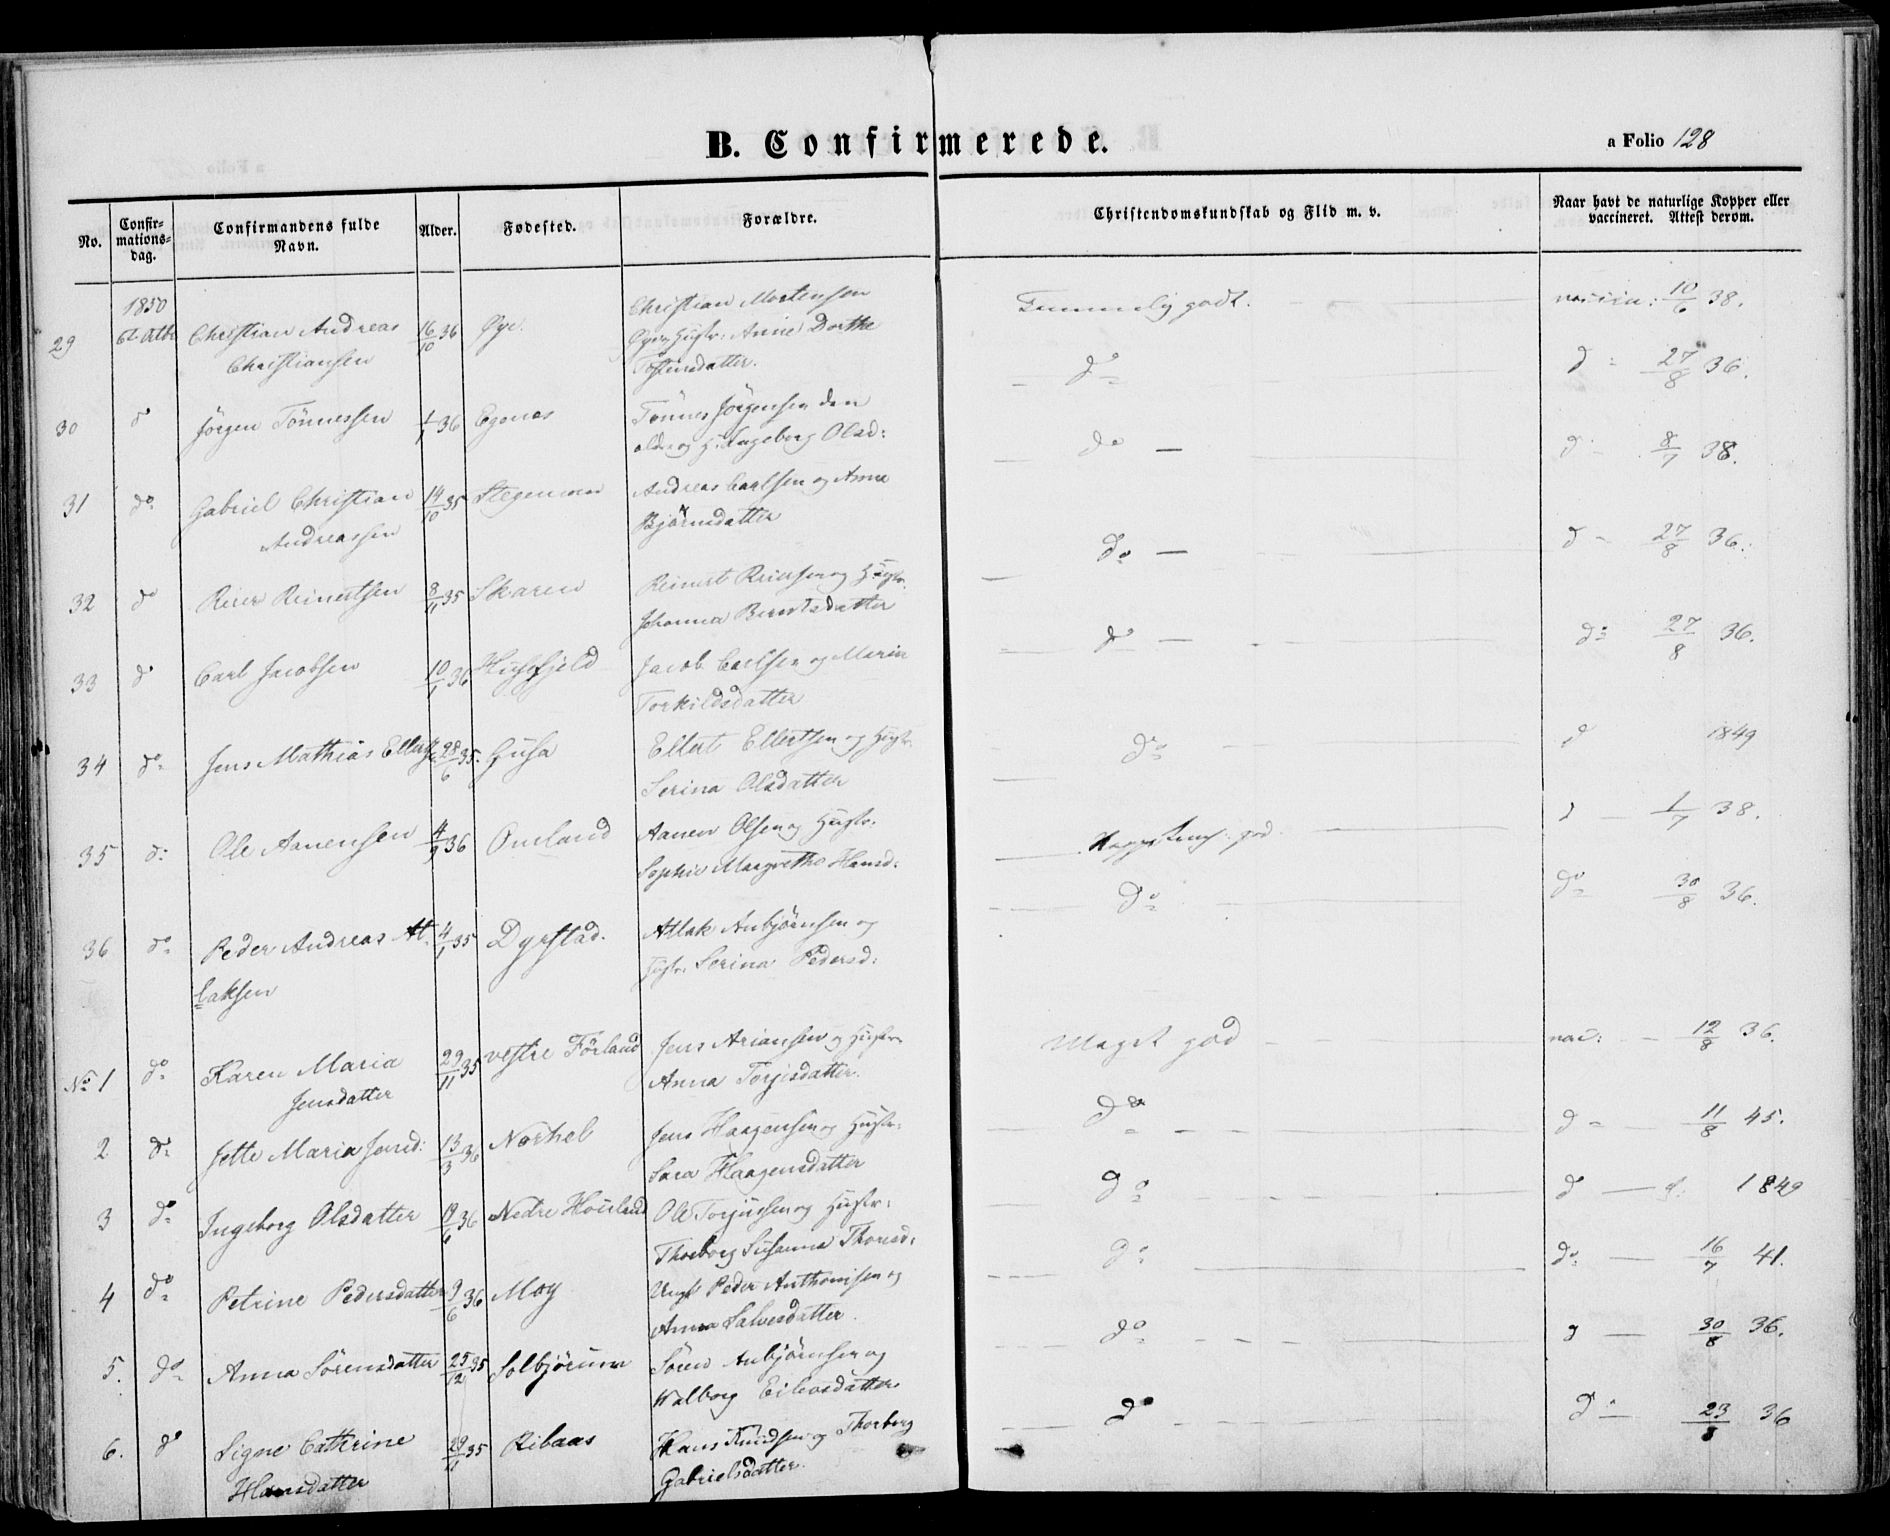 B. Confirmerede.
a Folio 128
No.
Confir-
mations-
dag.
Confirmandens fulde
Navn.
Alder.
Fødested.
Forældre.
Christendomskundskab og Flid m. v.
Naar havt de naturlige Kopper eller
vaccineret. Attest derom.
1850
29 Christian Andreas 16/10 36 Øye. Christian Mortensen
Christiansen Hustr: Anne Dorthe
Tostensdatter.
Temmelig godt. 10/6 38.
30 do Jörgen Tönnessen 1/1 36 Egenes Tönnes Jörgensen den
ældre og H. Ingeborg Olsd:
do d - 27/8 36.
31 do Gabriel Christian 14/10 35 Stegemoen Andreas Carlsen og Anne
Andreassen Bjørnsdatter
do - d - 8/7 38.
32 do Reier Reinertsen 8/1 35 Skaren Reinert Reiersen og Hustr.
Johanna Berntsdatter
do - d - 27/8 36.
33 do Carl Jacobsen 10/1 36 Husefjeld Jacob Carlsen og Maria
Torkildsdatter
do - do 27/8 36.
34 do Jens Mathias Ellerts 28/6 35. Husa Ellert Ellertsen og Hustr.
Serina Olsdatter
do d 1849
35 do Ole Aanensen 4/9 36 Omland Aanen Olsen og Hustr.
Sophie Margrethe Hansd:
god d 1/7 38.
36 do Peder Andreas At- 4/1 35 Dyrstad. Atlak Anbjörnsen og
laksen Hustr. Serina Pedersd:
do do 30/8 36.
No 1 do Karen Maria 29/11 35 vestre Förland Jens Ariansen og Hustr.
Jensdatter Anna Torjisdatter.
Meget god vac: 12/8 36.
2 do Jette Maria Jensd: 13/3 36 Nørhel Jens Haagensen og Hustr.
Sara Haagensdatter
do d - 11/8 45.
3 do Ingeborg Olsdatter 19/6 36 Nedre Houland Ole Torjussen og Hustr:
Thorborg Susanna Thorsd.
do d 1849
4 do Petrine Pedersdatter 9/6 36 Moy Ungk Peder Anthonisen og
Anna Salvesdatter.
do do 16/7 41.
5. do Anna Sörensdatter 25/12 35 Solbjørum Sören Anbjörnsen og
Walborg Eilevsdatter
do d 30/8 36.
6. do Signe Cathrine 29/11 35 Ribaas Hans Knudsen og Thorborg
Hansdatter Gabrielsdatter.
do d 23/8 36